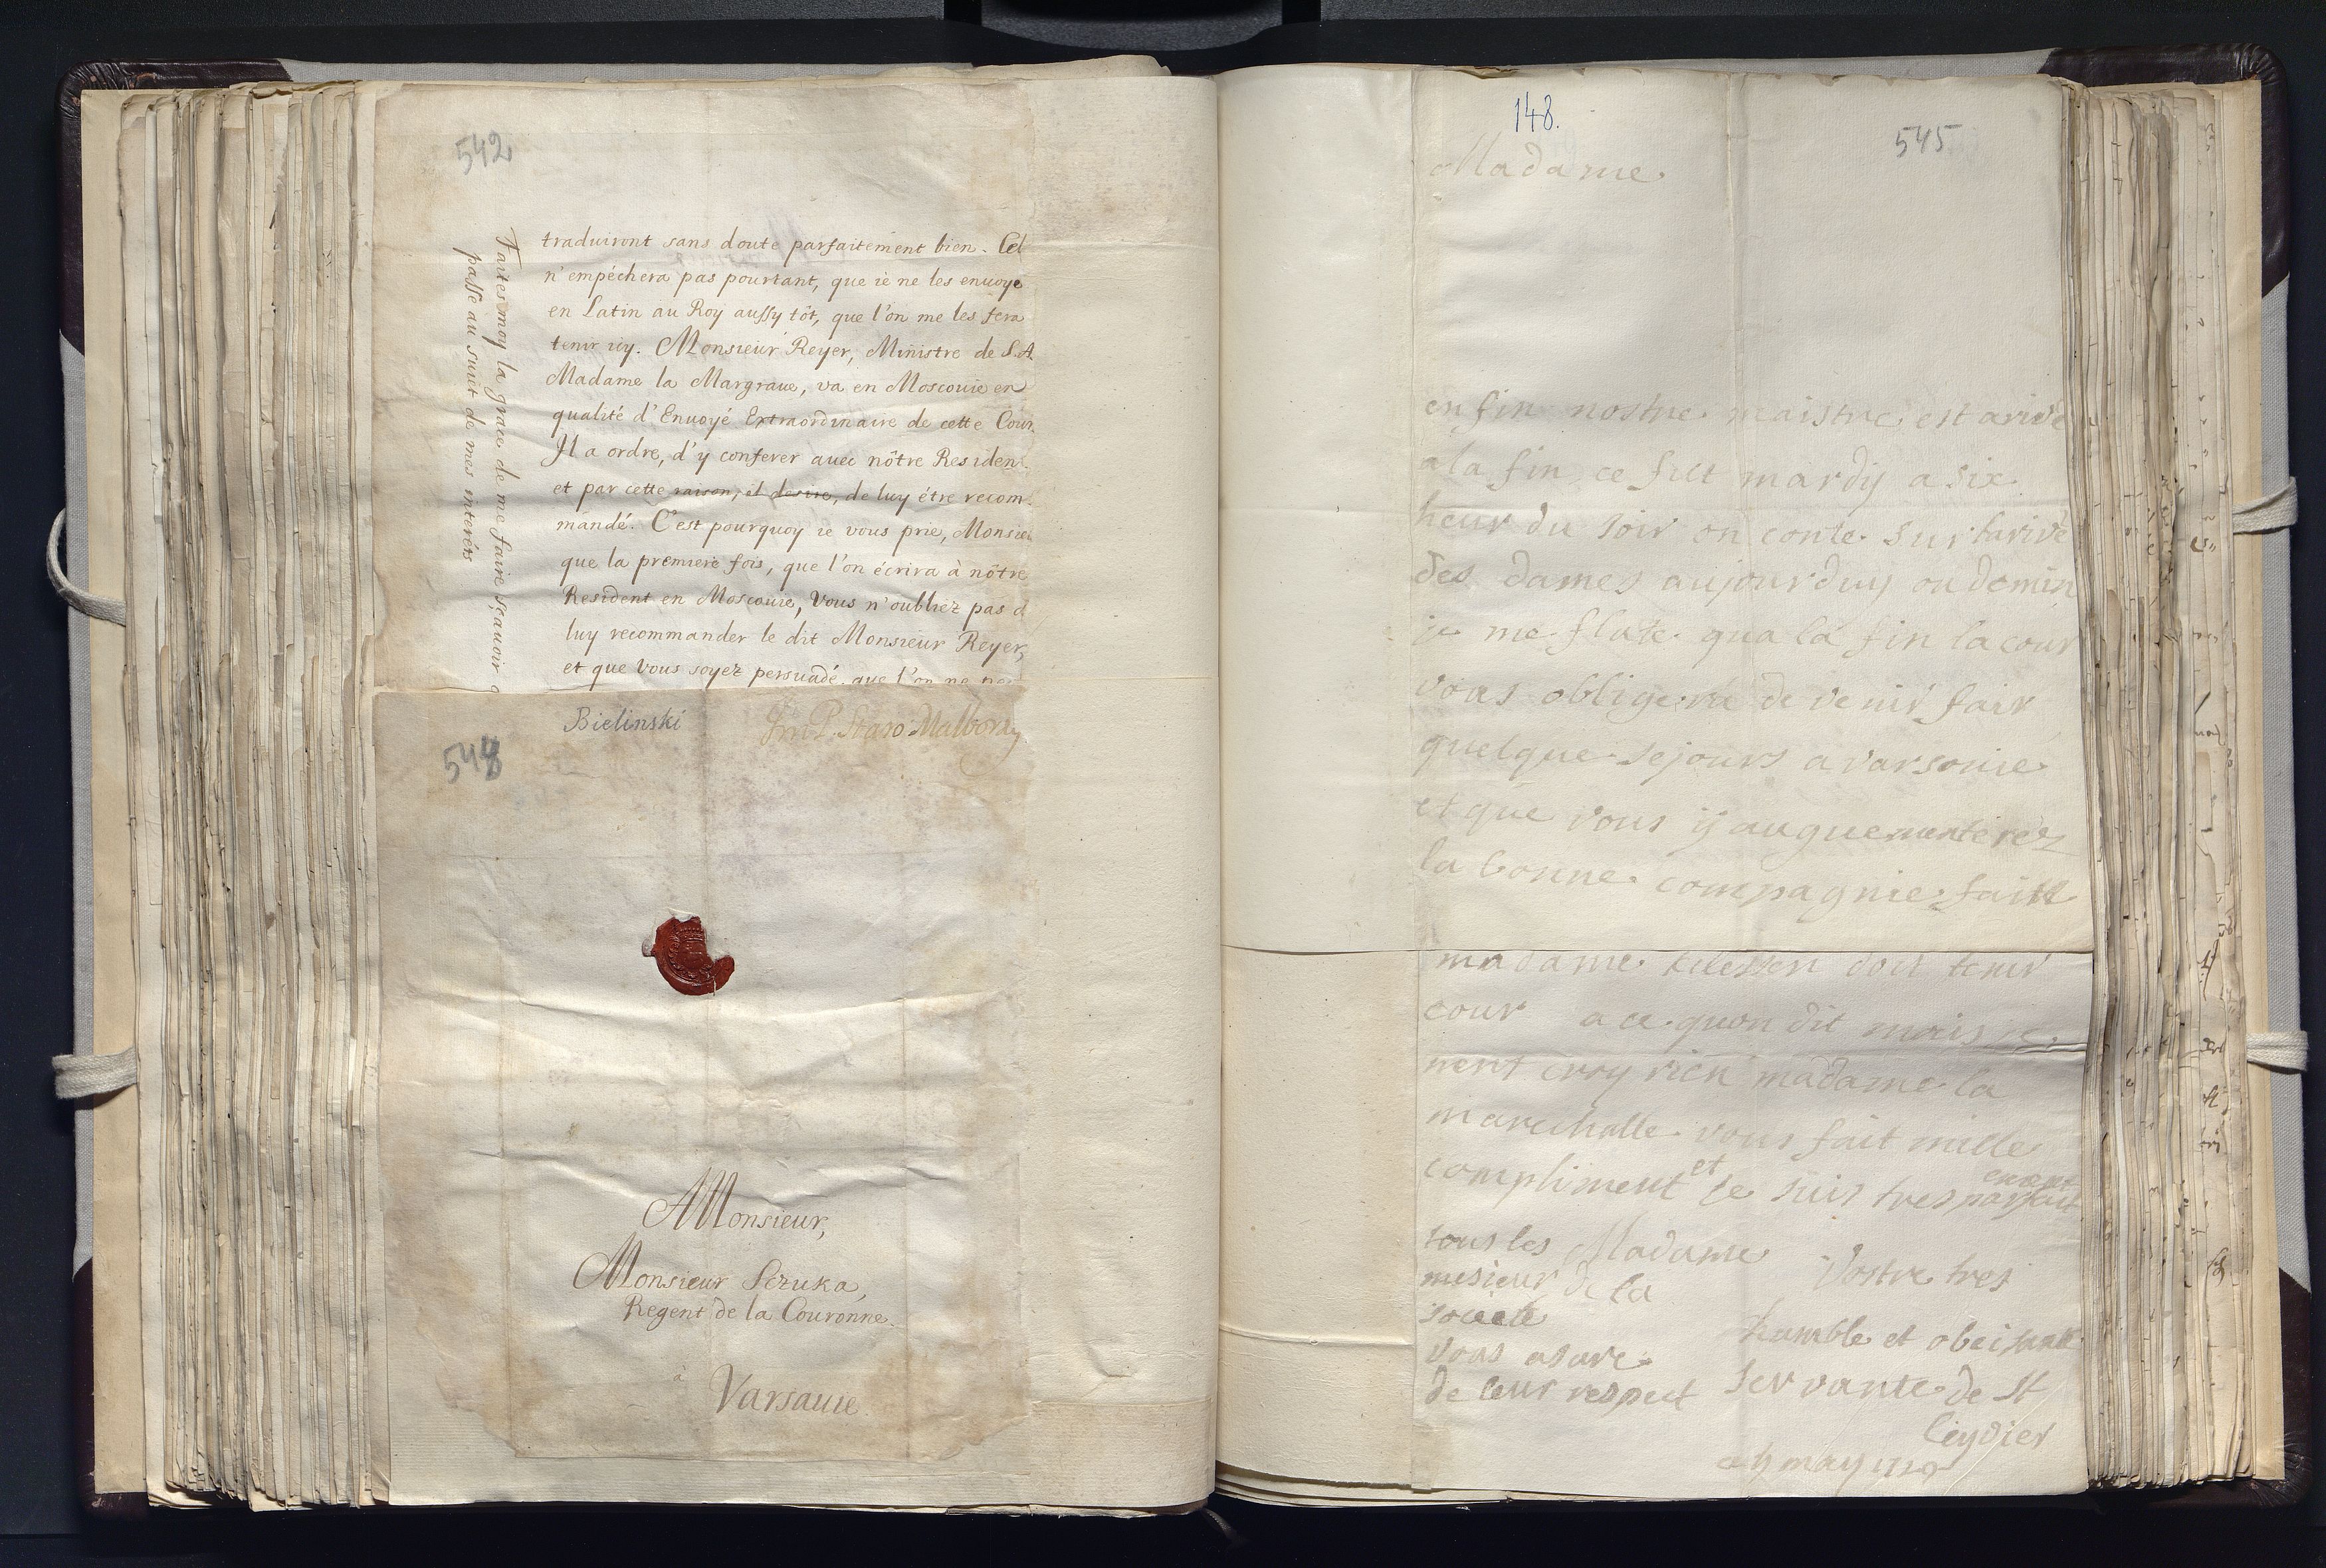 542
traduiront sans doute parfaitement bien. Cel
n'empéchera pas pourtant, que ie ne les enuoye
en Latin au Roy aussy tôt, que l'on me les fera
tenir icy. Monsieur Reyer, Ministre de S.A.
Madame la Margraue, va en Moscouie en
qualité d'Enuoyé Extraordinaire de cette Cour.
Il a ordre, d'y conferer auec nôtre Residen
et par cette raison, il desire, de luy étre recom-
mandé. C'est pourquoy ie vous prie, Monsieu
que la premiere fois, que l'on écrira à nôtre
Resident en Moscouie, Vous n'oubliez pas d
luy recommander le dit Monsieur Reyer,
et que Vous soyez persuadé, que l'on ne
Faites moy la grace de me faire sçauoir q
passe au suiet de mes interéts
Bielinski
Jm P. Staro Malborsky
548
A Monsieur,
Monsieur Sczuka,
Regent de la Couronne.
à
Varsauie.
148.
545
Madame
enfin nostre maistre est arivé
a la fin ce fut mardy a six
heur du soir on conte sur larivé
des dames aujourduy ou demin
je me flate qua la fin la cour
vous obligera de venir fair
quelque sejours a varsovie
et que vous y auguementerez
la bonne compagnie
madame doit tenir
cour a ce quon dit mais je
nent croy rien madame la
marechalle vous fait mille
compliment et je suis tres
Madame
Vostre tres
humble et obeisante
servante de St
Ceydier
ce may 1719
tous les
mesieur de la
societe
vous asure
de leur respect